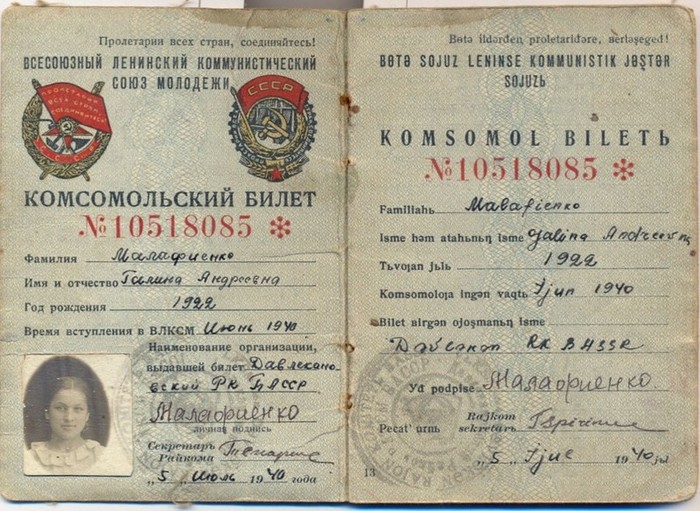 Пролетарии всех стран, соединяйтесь!
ВСЕСОЮЗНЫЙ ЛЕНИНСКИЙ КОММУНИСТИЧЕСКИЙ
СОЮЗ МОЛОДЕЖИ
ПРОЛЕТАРИИ
ВСЕХ СТРАН
СОЕДИНЯЙТЕСЬ
СССР
СССР
КОМСОМОЛЬСКИЙ БИЛЕТ
№10518085 ✻
Фамилия Малафиенко
Имя и отчество Галина Андреевна
Год рождения 1922
Время вступления в ВЛКСМ Июнь 1940
Наименование организации,
выдавшей билет Давлекано-
вский РК БАССР
Малафиенко
личная подпись
Секретарь
Райкома
„5„ Июль 1940 года
Bөtә ilderden proletaridәre, berlәşeged!
BӨTӘ SOJUZ LENINSE KOMMUNISTIK JӘŞTӘR
SOJUZЬ
KOMSOMOL BILETЬ
№10518085 ✻
Familiahь Malafienko
Isme hәm atahьnьꞑ isme Galina Andreevna
Tьvojan jьlь 1922
Komsomoloja ingәn vaqtь Ijun 1940
Bilet birgәn ojoşmanьꞑ isme
Dәvlәkәn RK BASSR
Yđ podpise Малафиенко
Pecat' urnь
Rajkom
sekretarь
„5„ Ijul 1940 jьl
13